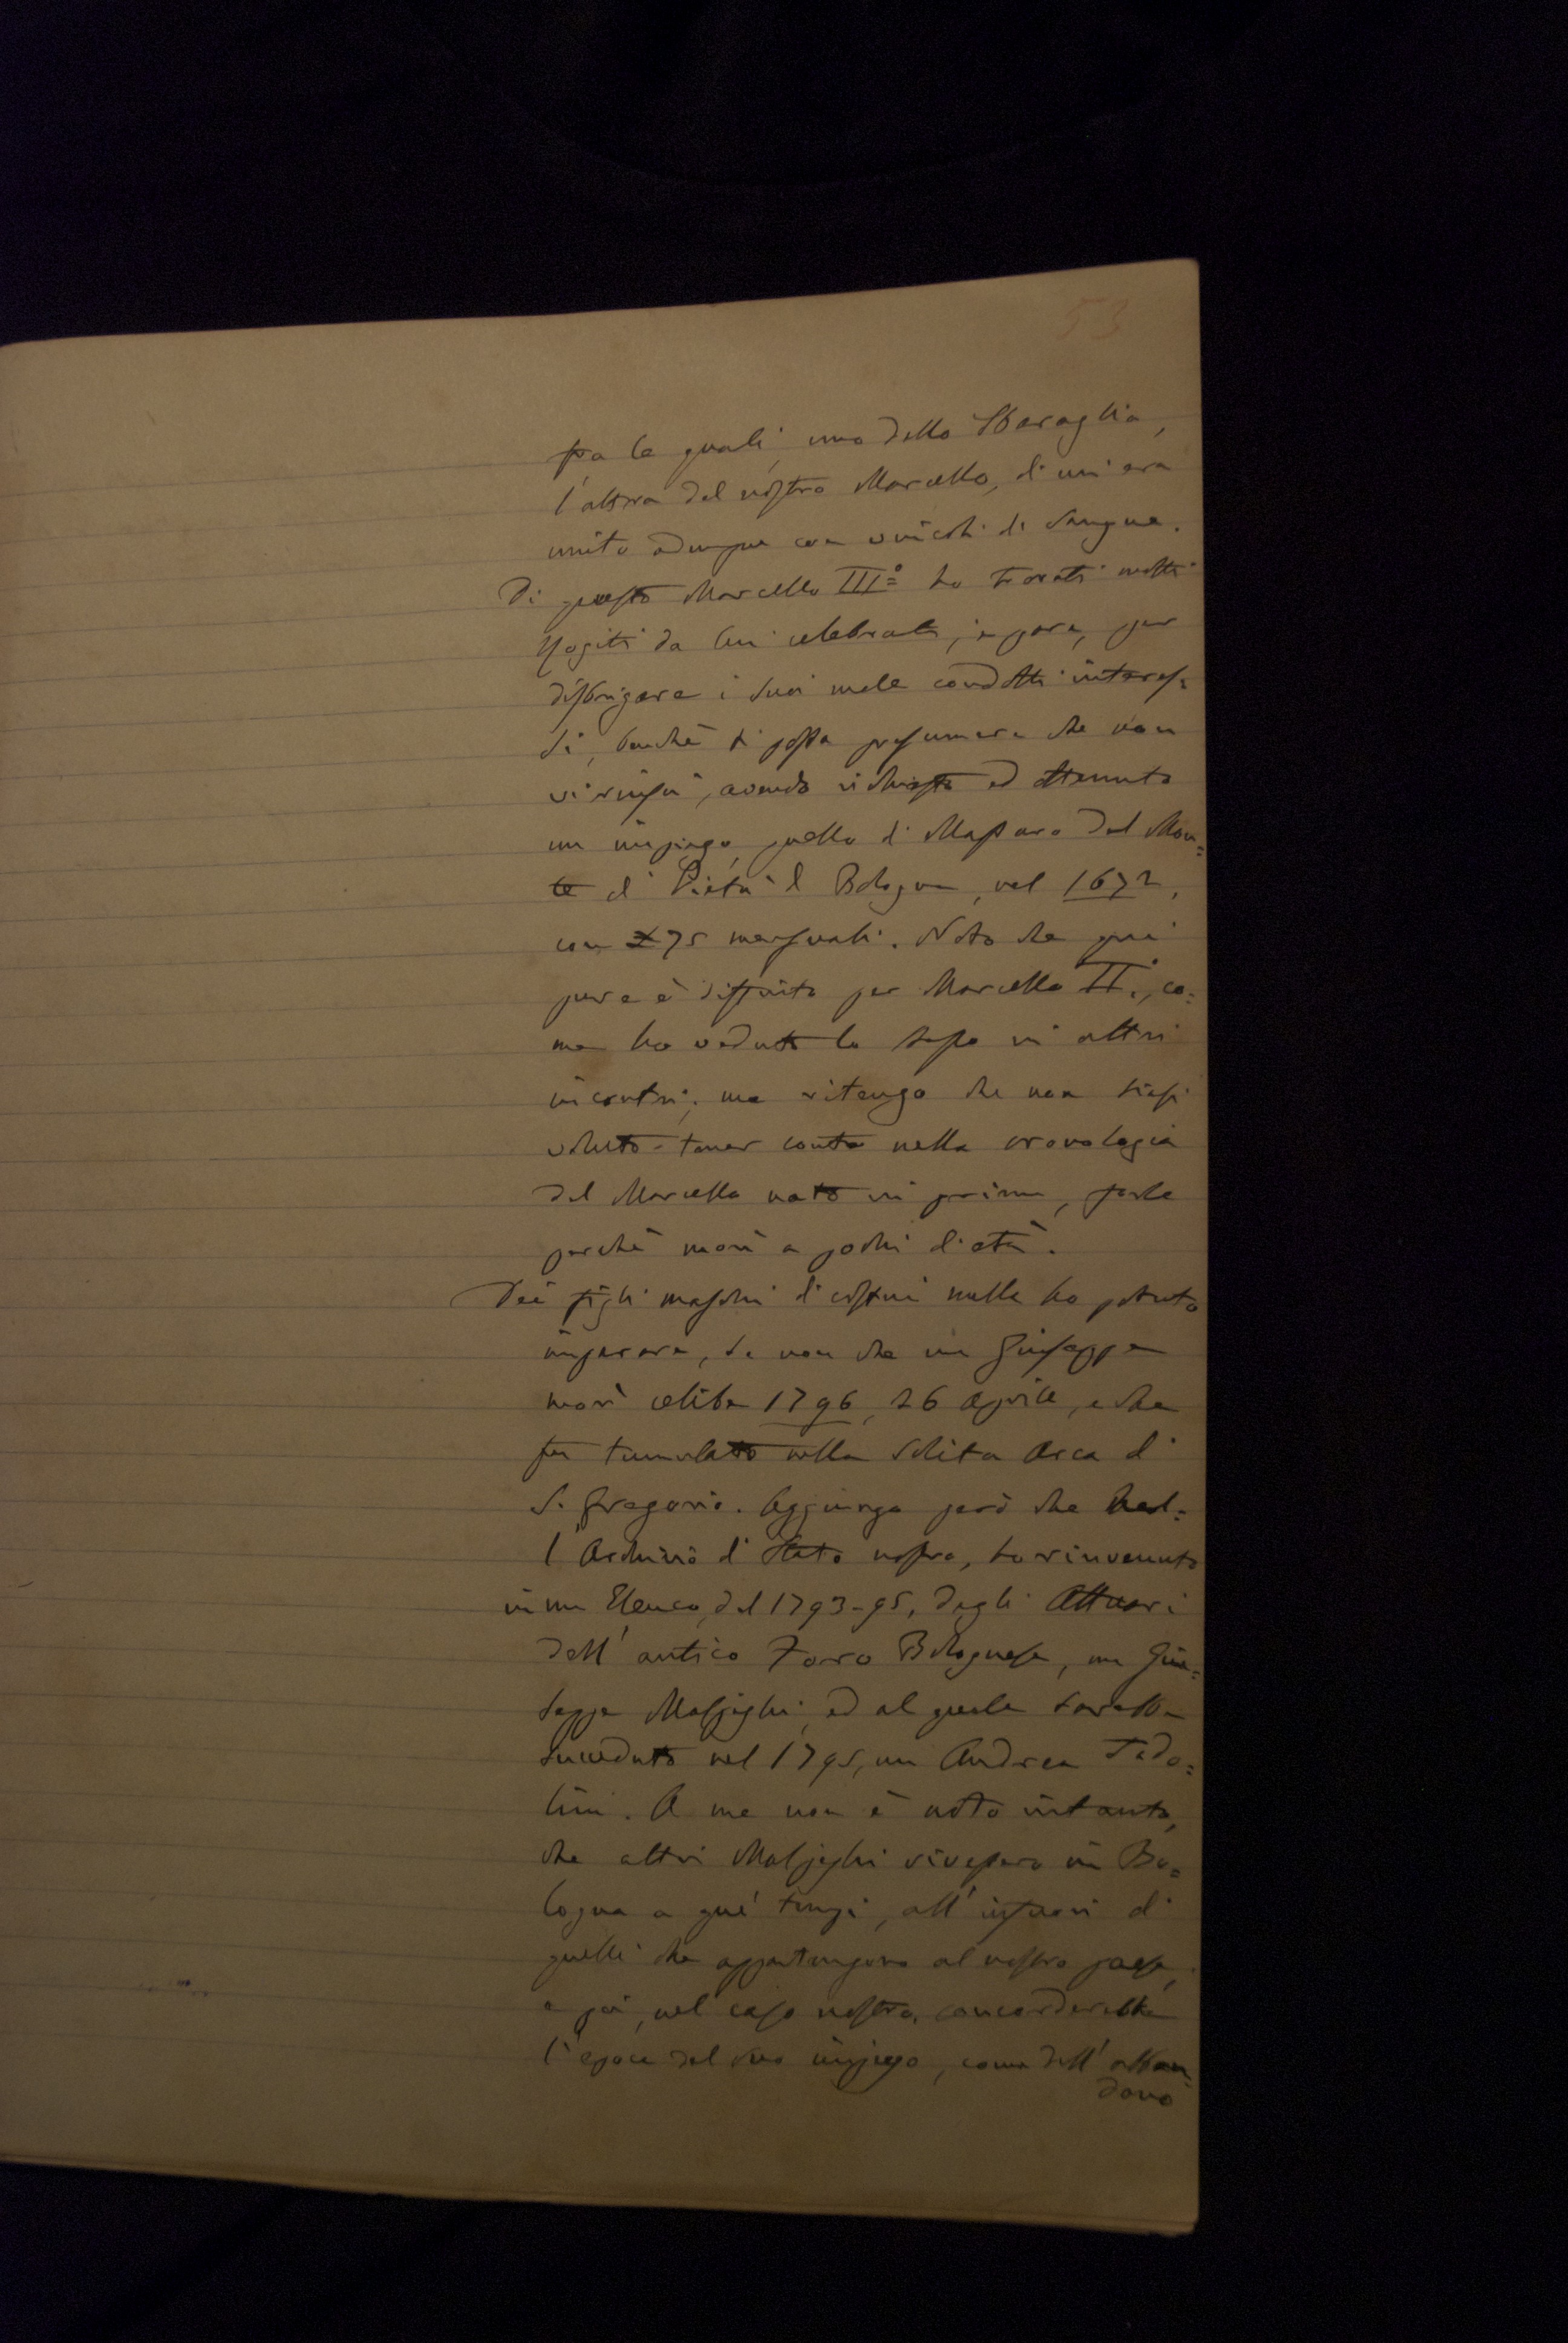 53
fra le quali, una dello Sbaraglia,
l'altra del nostro Marcello, di cui era
unito adunque con vincoli di sangue.
Di questo Marcello III.º ho trovati molti
Rogiti da lui celebrati, e pare, per
disbrigare i suoi male condotti interes-
si, benchè si possa presumere che non
vi riuscì, avendo richiesto ed ottenuto
un impiego, quello di Massaro del Mon=
te di Pietà di Bologna, nel 1672,
con £ 75 mensuali. Noto che qui
pure è distinto per Marcello II.º, co=
me ho veduto lo stesso in altri
incontri; ma ritengo che non siasi
voluto tener conto nella cronologia
del Marcello nato in prima, forse
perchè morì a pochi dì d'età.
Dei figli maschi di costui nulla ho potuto
imparare, se non che un Giuseppe
morì celibe 1796, 26 Aprile, e che
fu tumulato nella solita Arca di
S. Gregorio. Aggiungo però che nel=
l'Archivio di Stato nostro, ho rinvenuto
in un Elenco, del 1793-95, degli Attuari
dell'antico Foro Bolognese, un Giu=
seppe Malpighi, ed al quale sarebbe
succeduto nel 1795, un Andrea Tado=
lini. A me non è noto intanto,
che altri Malpighi vivessero in Bo=
logna a que' tempi, all'infuori di
quelli che appartengono al nostro paese,
e poi, nel caso nostro, concorderebbe
l'epoca del suo impiego, come dell'abban=
dono